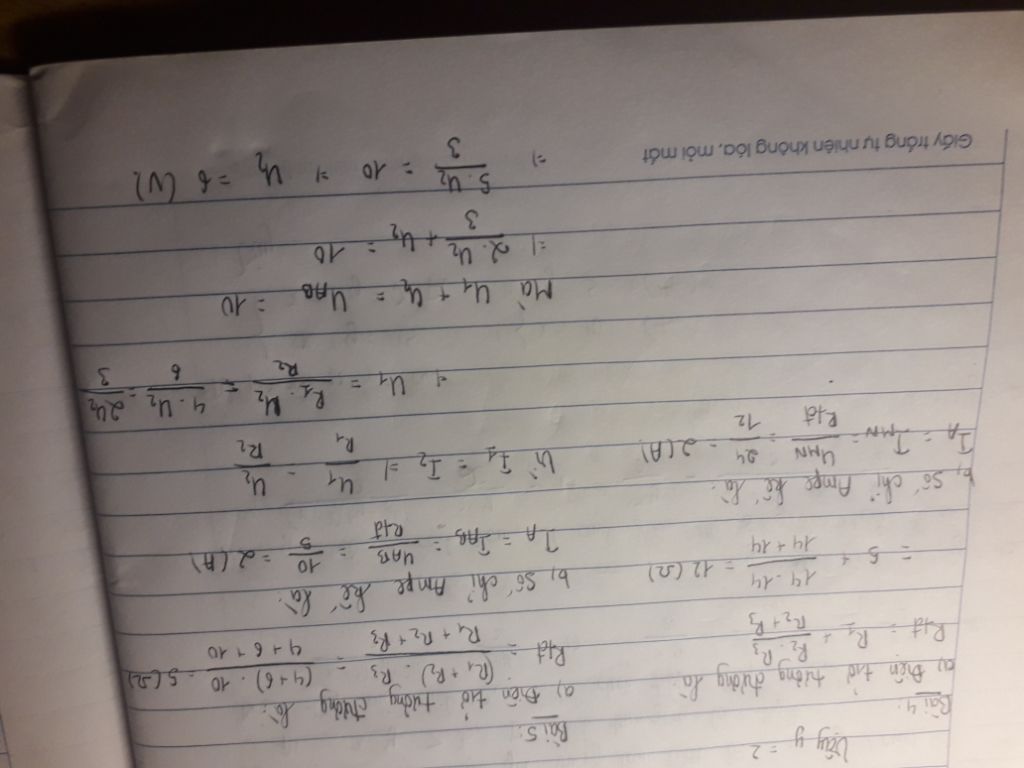 Vậy y = 2
Bài 4:
a) Điện trở tương đương là:
Rtđ = R1 + R2 . R3 / R2 + R3
= 5 + 14 . 14 / 14 + 14 = 12 (Ω)
b) Số chỉ Ampe kế là:
IA = IMN = UMN / Rtđ = 24 / 12 = 2 (A)
Bài 5:
a) Điện trở tương đương là:
Rtđ = (R1 + R2) . R3 / R1 + R2 + R3 = (4 + 6) . 10 / 4 + 6 + 10 = 5 (Ω)
b) Số chỉ Ampe kế là:
IA = IAB = UAB / Rtđ = 10 / 5 = 2 (A)
Vì I1 = I2 => U1 / R1 = U2 / R2
=> U1 = R1 . U2 / R2 = 4 . U2 / 6 = 2U2 / 3
Mà U1 + U2 = UAB = 10
=> 2 . U2 / 3 + U2 = 10
=> 5 . U2 / 3 = 10 => U2 = 6 (V)
Giấy trắng tự nhiên không lóa, mỏi mắt